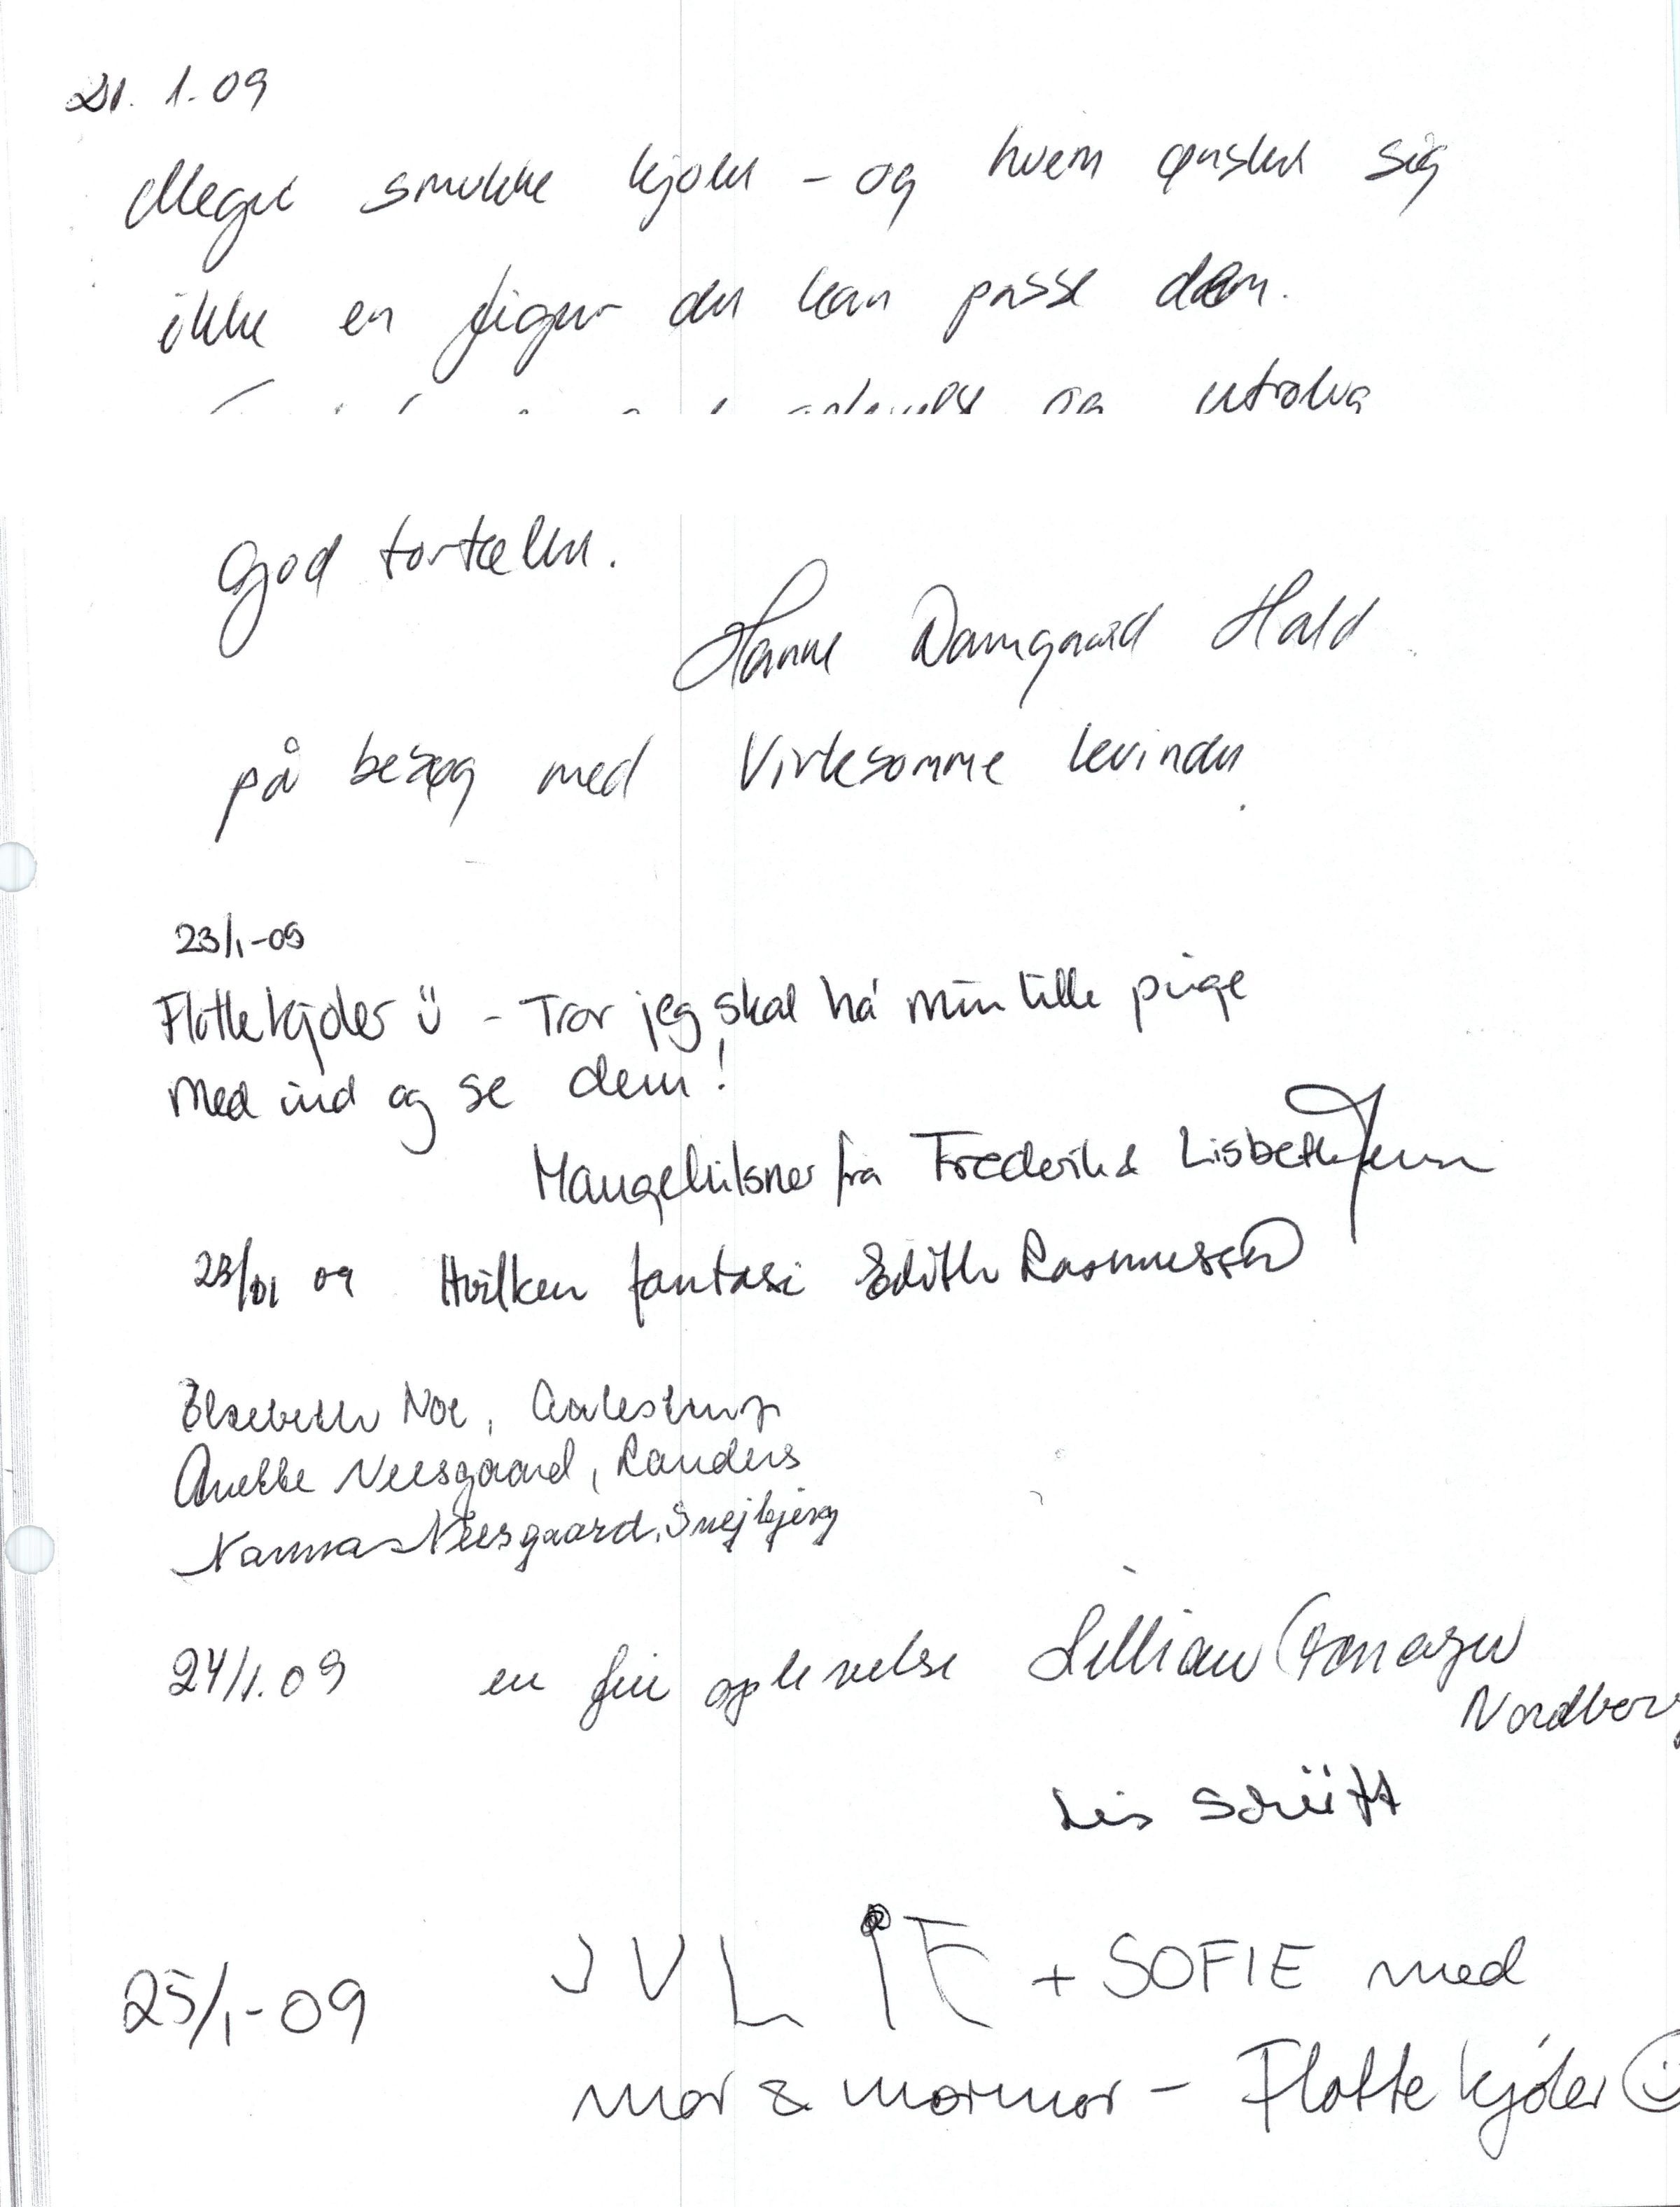 21. 1.09
Meget smukke kjoler - og hvem ønsker sig
ikke en figur der kan passe dem.
oplevelse og utrolig
God fortæller.
Hanne Damgaard Hald
på besøg med Virksomme kvinder
23/1-09
Flotte kjoler ü - Tror jeg skal há min lille pige
med ind og se dem!
Mange hilsner fra Frederik & Lisbeth
23/01 09 Hvilken fantasi Edith Rasmussen
Elsebeth Noe, Aalestrup
Anette Neesgaard, Randers
Nanna Neesgaard, Snejbjerg
24/1.09 en fin oplevelse Lillian
Nordborg
Lis Schütt
25/1-09 JULIE + SOFIE med
mor & mormor - Flotte kjoler ☺